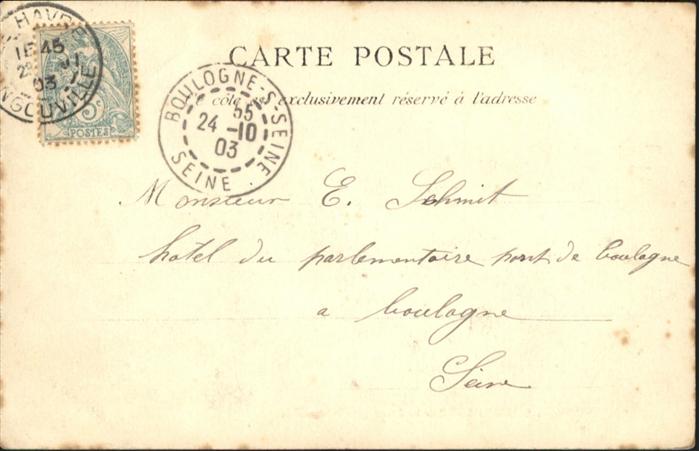 HAVRE
15 45
03
INGOUVILLE
5c
POSTES
CARTE POSTALE
côté exclusivement réservé à l'adresse
BOULOGNE-S-SEINE
55
24 -10
03
SEINE
Monsieur E. Schmit
hotel du parlementaire pont de boulogne
a boulogne
Seine